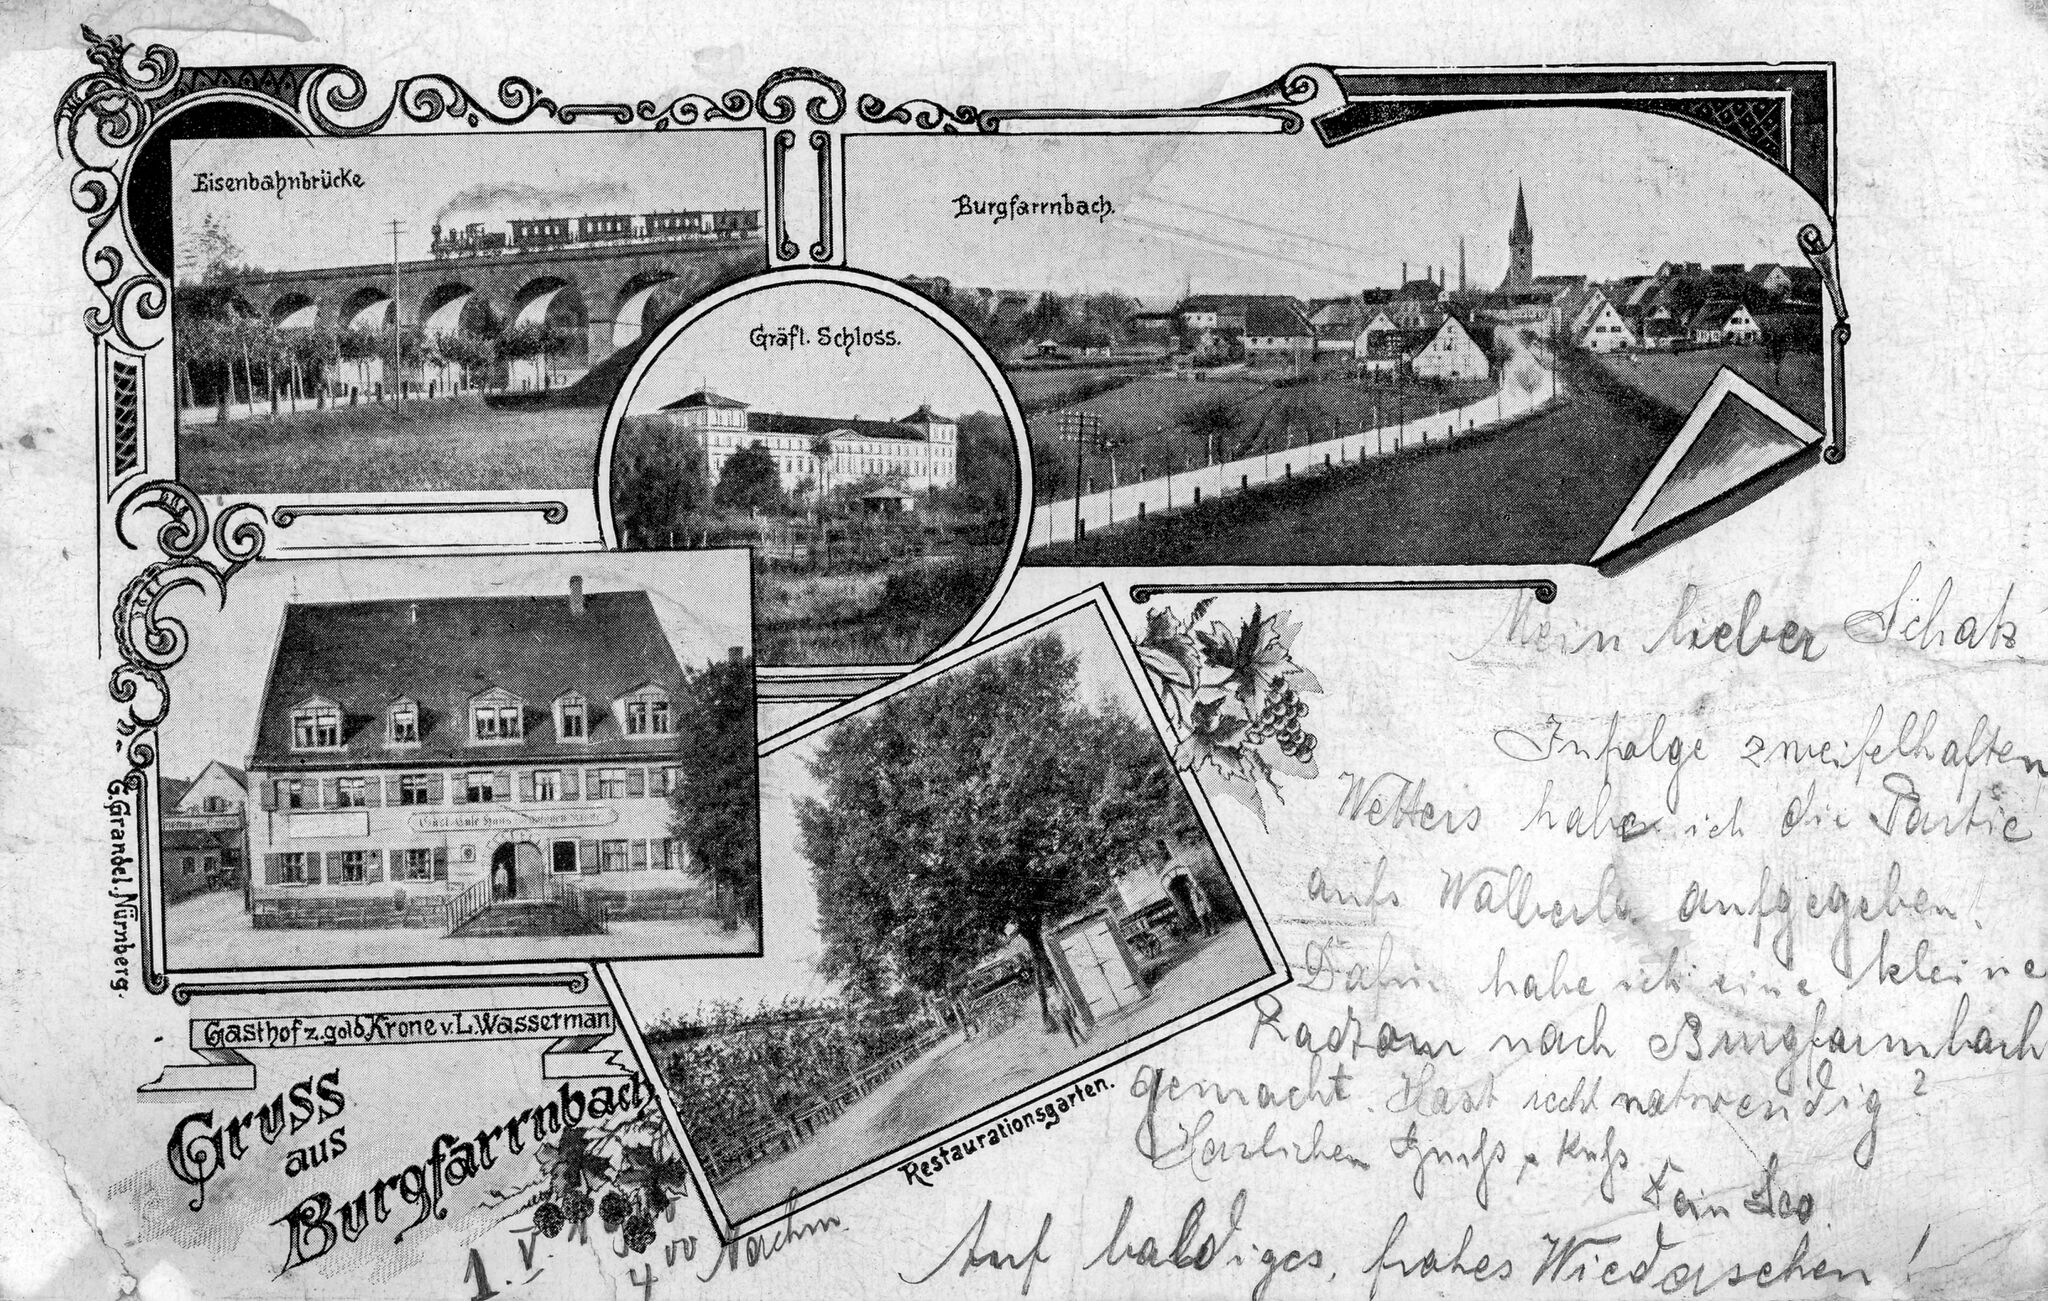 Eisenbahnbrücke
Burgfarrnbach.
Gräfl. Schloss.
G. Grandel. Nürnberg.
Gasthof z. gold Krone v. L. Wasserman
Gruss
aus
Burgfarrnbach
Restaurationsgarten.
Mein lieber Schatz
Infolge zweifelhaften
Wetters habe ich die Partie
aufs Walberla aufgegeben!
Dafür habe ich eine kleine
Radtour nach Burgfarrnbach
gemacht. Hast recht notwendig?
Herzlichen Gruß u Kuß
Dein Leo.
Auf baldiges, frohes Wiedersehen!
1. V.
4 00 Nachm.